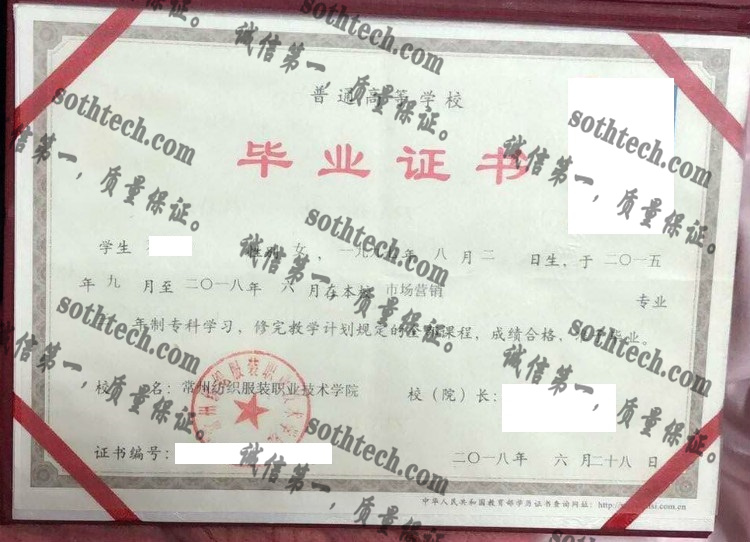 普通高等学校
毕业证书
学生 性别 女，一九九 年 八 月 二 日生，于 二〇一五
年 九 月至 二〇一八年 六 月在本校 市场营销 专业
年制专科学习，修完教学计划规定的全部课程，成绩合格，准予毕业。
校 名：常州纺织服装职业技术学院 校（院）长：
证书编号：
二〇一八年 六 月二十八日
中华人民共和国教育部学历证书查询网址：http://
sothtech.com
诚信第一，质量保证。
sothtech.com
诚信第一，质量保证。
sothtech.com
诚信第一，质量保证。
sothtech.com
诚信第一，质量保证。
sothtech.com
诚信第一，质量保证。
sothtech.com
诚信第一，质量保证。
sothtech.com
诚信第一，质量保证。
sothtech.com
诚信第一，质量保证。